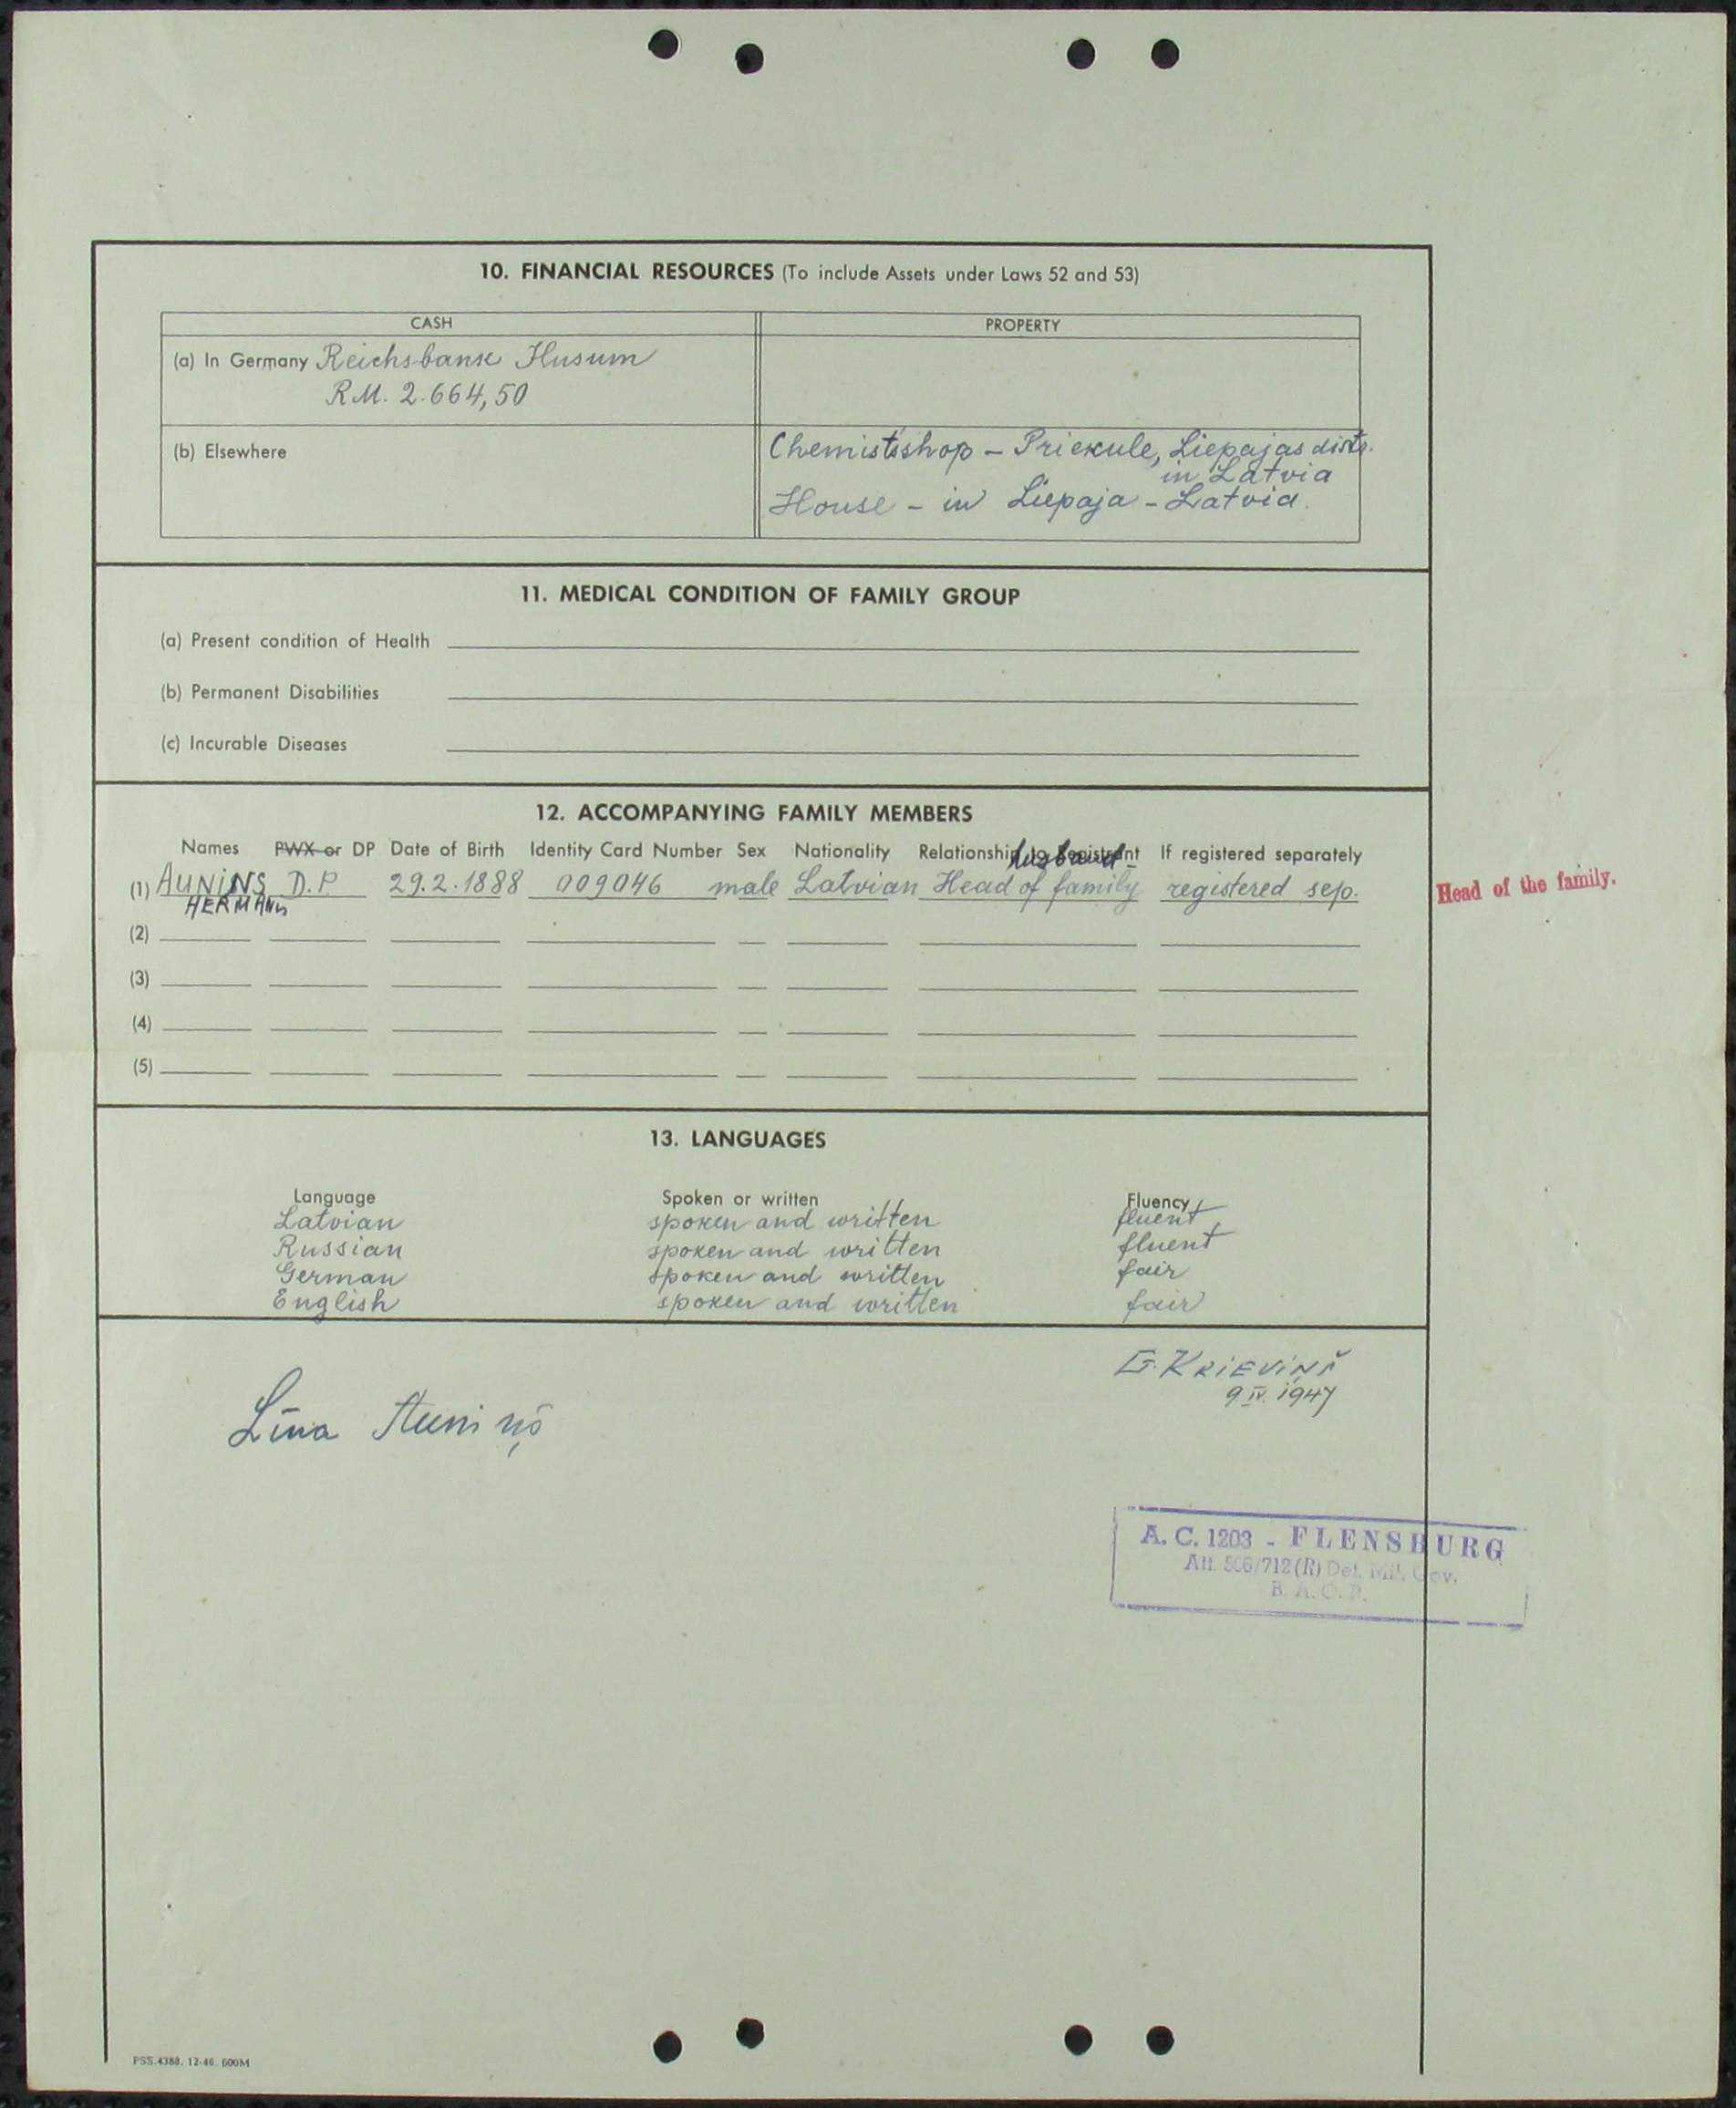 10. FINANCIAL RESOURCES (To include Assets under Laws 52 and 53)
CASH PROPERTY
(a) In Germany Reichsbank Husum
RM. 2.664,50
(b) Elsewhere Chemistsshop – Priekule, Liepajas distr.
in Latvia
House – in Liepaja – Latvia.
11. MEDICAL CONDITION OF FAMILY GROUP
(a) Present condition of Health
(b) Permanent Disabilities
(c) Incurable Diseases
12. ACCOMPANYING FAMILY MEMBERS
Names PWX or DP Date of Birth Identity Card Number Sex Nationality Relationship to Registrant If registered separately
husband
(1) AUNINS D.P 29.2.1888 009046 male Latvian Head of family registered sep.
HERMANS
Head of the family.
(2)
(3)
(4)
(5)
13. LANGUAGES
Language Spoken or written Fluency
Latvian spoken and written fluent
Russian spoken and written fluent
German spoken and written fair
English spoken and written fair
Līna Auniņš
G. KRIEVIŅŠ
9 IV. 1947
A. C. 1203 - FLENSBURG
Att. 506/712 (R) Det. Mil. Gov.
B. A. O. R.
PSS.4388. 12-46. 600M